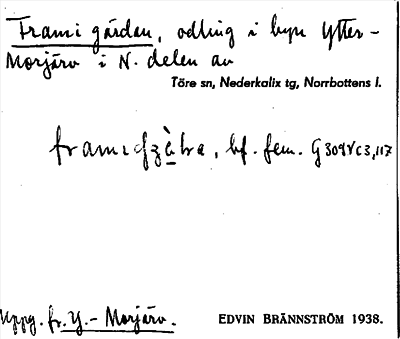 Fram i gården, odling i byn Ytter-
Morjärv i N. delen av
Töre sn, Nederkalix tg, Norrbottens l.
bf. fem.
Uppg. fr. Y.-Morjärv.
EDVIN BRÄNNSTRÖM 1938.